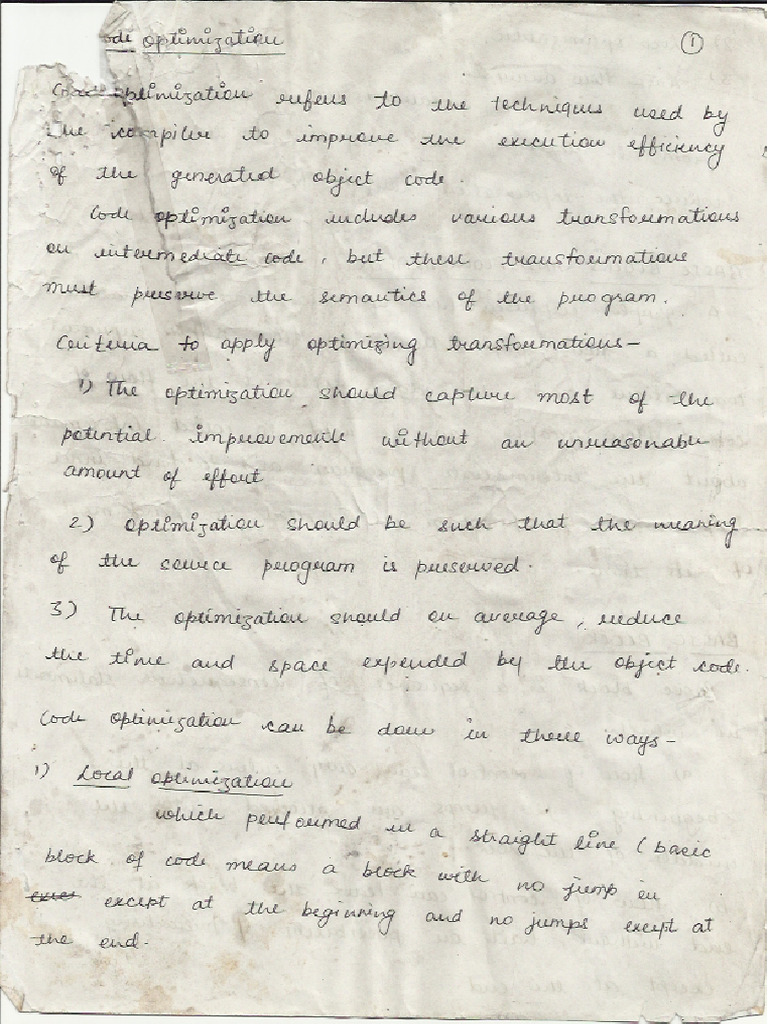 ode optimization
①
Code optimization refers to the techniques used by
the compiler to improve the execution efficiency
of the generated object code.
Code optimization includes various transformations
on intermediate code, but these transformations
must preserve the semantics of the program.
Criteria to apply optimizing transformations-
1) The optimization should capture most of the
potential improvements without an unreasonable
amount of effort
2) optimization should be such that the meaning
of the source program is preserved.
3) The optimization should on average, reduce
the time and space expended by the object code.
Code optimization can be done in three ways-
1) Local optimization
which performed in a straight line (basic
block of code means a block with no jump in
except at the beginning and no jumps except at
the end.